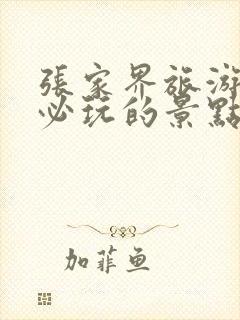 張家界旅游
必玩的景點
加菲鱼